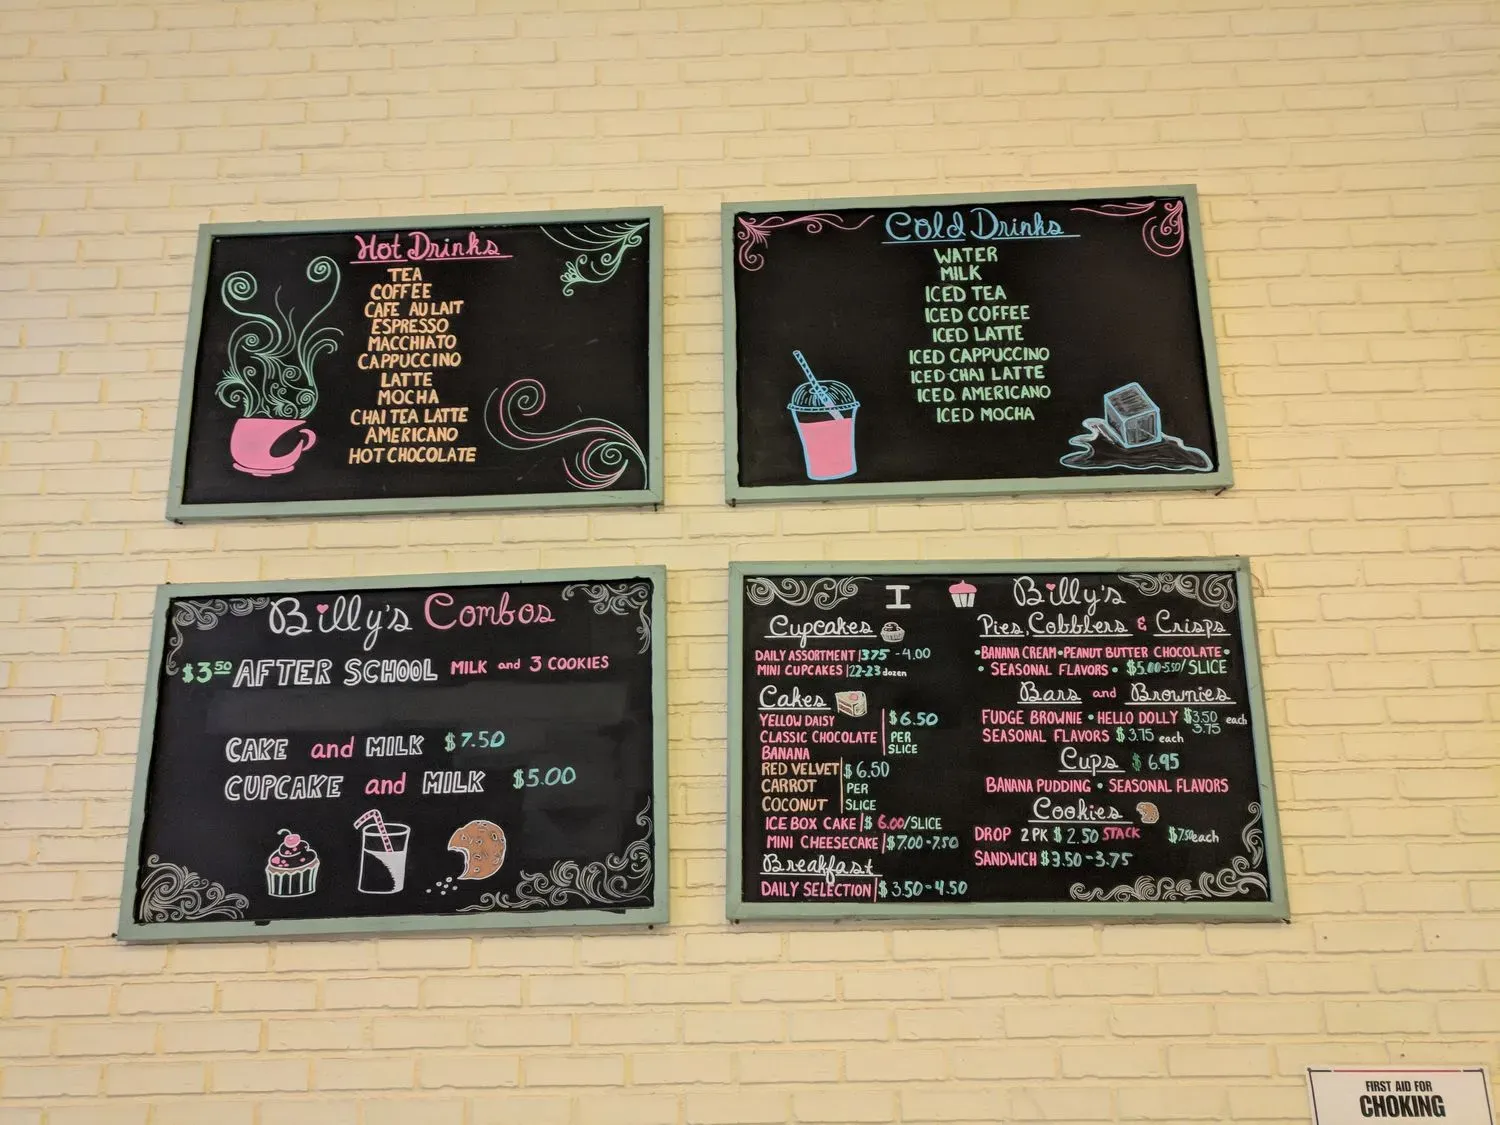 Hot Drinks
TEA
COFFEE
CAFE AU LAIT
ESPRESSO
MACCHIATO
CAPPUCCINO
LATTE
MOCHA
CHAI TEA LATTE
AMERICANO
HOT CHOCOLATE
Cold Drinks
WATER
MILK
ICED TEA
ICED COFFEE
ICED LATTE
ICED CAPPUCCINO
ICED CHAI LATTE
ICED AMERICANO
ICED MOCHA
Billy's Combos
$3.50 AFTER SCHOOL MILK and 3 COOKIES
CAKE and MILK $7.50
CUPCAKE and MILK $5.00
I Billy's
Cupcakes
DAILY ASSORTMENT 3.75 - 4.00
MINI CUPCAKES 22-23 dozen
Cakes
YELLOW DAISY $6.50
CLASSIC CHOCOLATE PER
BANANA SLICE
RED VELVET $6.50
CARROT PER
COCONUT SLICE
ICE BOX CAKE $6.00/SLICE
MINI CHEESECAKE $7.00-7.50
Breakfast
DAILY SELECTION $3.50-4.50
Pies, Cobblers & Crisps
•BANANA CREAM•PEANUT BUTTER CHOCOLATE•
• SEASONAL FLAVORS • $5.00-5.50/SLICE
Bars and Brownies
FUDGE BROWNIE • HELLO DOLLY $3.50 each
SEASONAL FLAVORS $3.75 each 3.75
Cups $6.95
BANANA PUDDING • SEASONAL FLAVORS
Cookies
DROP 2PK $2.50 STACK $7.50 each
SANDWICH $3.50-3.75
FIRST AID FOR
CHOKING